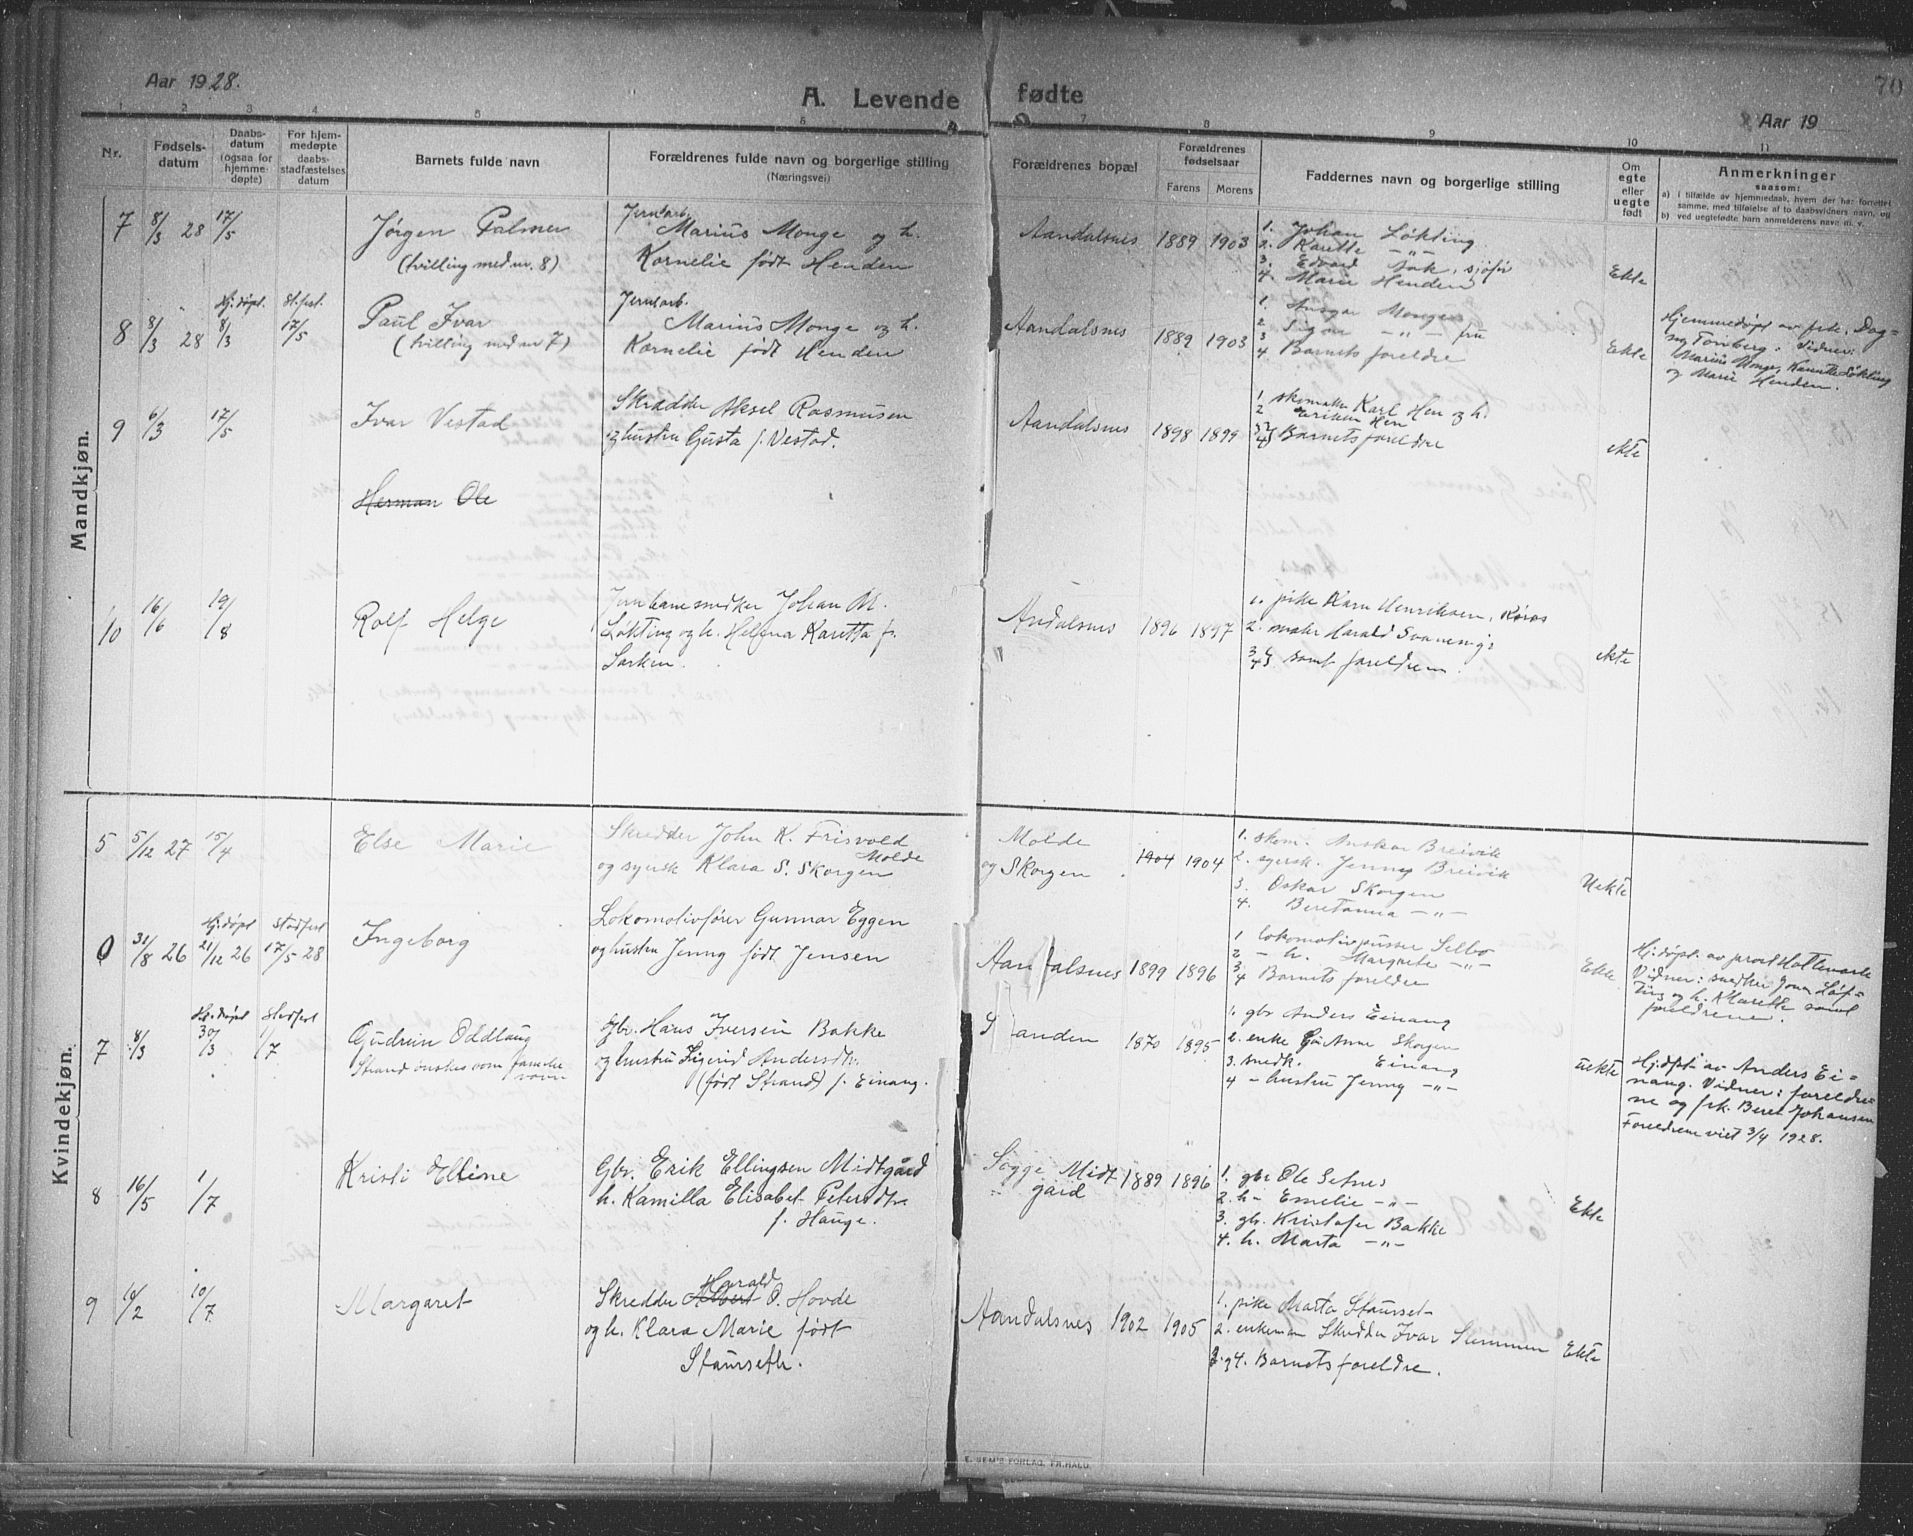 Aar 1928.
A. Levende fødte
70
Aar 19
1 2 3 4 5 6 7 8 9 10 11
Nr.
Fødsels-
datum
Daabs-
datum
(ogsaa for
hjemme-
døpte)
For hjem-
medøpte
daabs-
stadfæstelses
datum
Barnets fulde navn
Forældrenes fulde navn og borgerlige stilling
(Næringsvei)
Forældrenes bopæl
Forældrenes
fødselsaar
Farens Morens
Faddernes navn og borgerlige stilling
Om
egte
eller
uegte
født
Anmerkninger
saasom:
a) i tilfælde av hjemmedaab, hvem der har forrettet
samme, med tilføielse af to daabsvidners navn, og
b) ved uegtefødte barn anmelderens navn m. v.
Mandkjøn.
7 8/3 28 17/5
Jørgen Palmer
(tvilling med nr. 8)
Jernarb.
Marius Monge og h.
Kornelie født Henden
Aandalsnes 1889 1903
1. Johan Løkting
2. Karette -"-
3. Edvard Aak, sjåfør
4. Marie Henden
Ekte
8 8/3 28 Hj. døpt. 8/3 St.fest. 17/5
Paul Ivar
(tvilling med nr 7)
Jernarb.
Marius Monge og h.
Kornelie født Henden
Aandalsnes 1889 1903
1. Ansgar Monge
2. Signe -"- fru
3
4. Barnets foreldre
Ekte
Hjemmedøpt av frk. Dag-
ny Tonberg. Vidner:
Marius Monge, Karette Løkting
og Marie Henden.
9 6/3 17/5
Ivar Vestad
Skrædder Aksel Rasmusen
og hustru Gusta f. Vestad.
Aandalsnes 1898 1899
1. skomaker Karl Hen og h.
2 Hen
3 4 } Barnets foreldre
ekte
Herman Ole
10 16/6 19/8
Rolf Helge
Jernbanesnedker Johan M.
Løkting og h. Helena Karetta f.
Larken.
Andalsnes 1896 1897
1. pike Karn Henriksen, Røros
2. maler Harald
3 4 } samt foreldrene.
ekte
Kvindekjøn.
5 5/12 27 15/4
Else Marie
Skredder John K. Frisvold
Molde
og syersk Klara S. Skorgen
Molde
og Skorgen 1904 1904
1. skom. Anskar Breivik
2. syersk. Jenny Breivik
3. Oskar Skorgen
4. Beretanna -"-
Uekte
6 31/8 26 Hj. døpt 21/12 26 Stadfest 17/5 28
Ingeborg
Lokomotivfører Gunnar Eggen
og hustru Jenny født Jensen
Aandalsnes 1899 1896
1 lokomotivpusser Selbo
2 - h. Margrete -"-
3/4 Barnets foreldre
Ekte
Hj. døpt. av prost
Vidner: snedker Johan Løk-
ting og h. Karette samt
foreldrene.
7 8/3 Hj. døpt 30/3 Stadfest 1/7
Gudrun Oddlaug
Strand ønskes som familie
navn
Gbr. Hans Iversen Bakke
og hustru Sigrid Andersdtr.
(født Strand) f. Einang.
Standen 1870 1895
1. gbr Anders Einang
2. enke Anne Skorgen
3. snedk. Einang
4 - hustru Jenny -"-
uekte
Hj.døpt av Anders Ei-
nang. Vidner: foreldre-
ne og frk. Beret Johansen
Foreldrene viet 3/4 1928.
8 16/5 1/7
Kristi Elline
Gbr. Erik Ellingsen Midtgård
h. Kamilla Elisabet Petersdtr.
f. Hauge.
Sogge Midt
gård 1889 1896
1. gbr Ole Setnes
2. h- Emelie -"-
3. gb. Kristofer Bakke
4. h. Marta -"-
Ekte
9 10/2 10/7
Margaret
Harald
Skredder Albert O. Hovde
og h. Klara Marie født
Staurseth.
Aandalsnes 1902 1905
1. pike Marta Staurset
2. enkeman Skredder Ivar Stemmen
3. og 4. Barnets foreldre.
Ekte
E. SEM'S FORLAG, FR.HALD